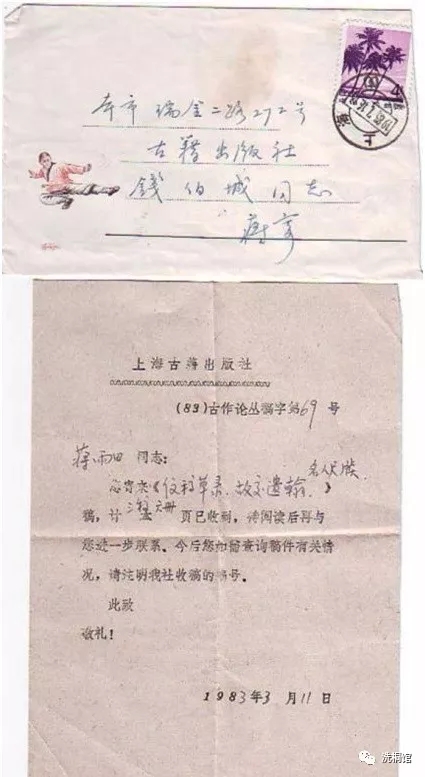 本市瑞金二路272号
古籍出版社
钱伯城同志
上海
上海古籍出版社
(83)古作论丛稿字第69号
蒋雨田 同志:
名人尺牍
您寄来《仅存草录、故交遗翰、》
稿,计 页已收到,待阅读后再与
您进一步联系。今后您如需查询稿件有关情
况,请注明我社收稿的编号。
此致
敬礼!
1983年3月11日
洗桐馆